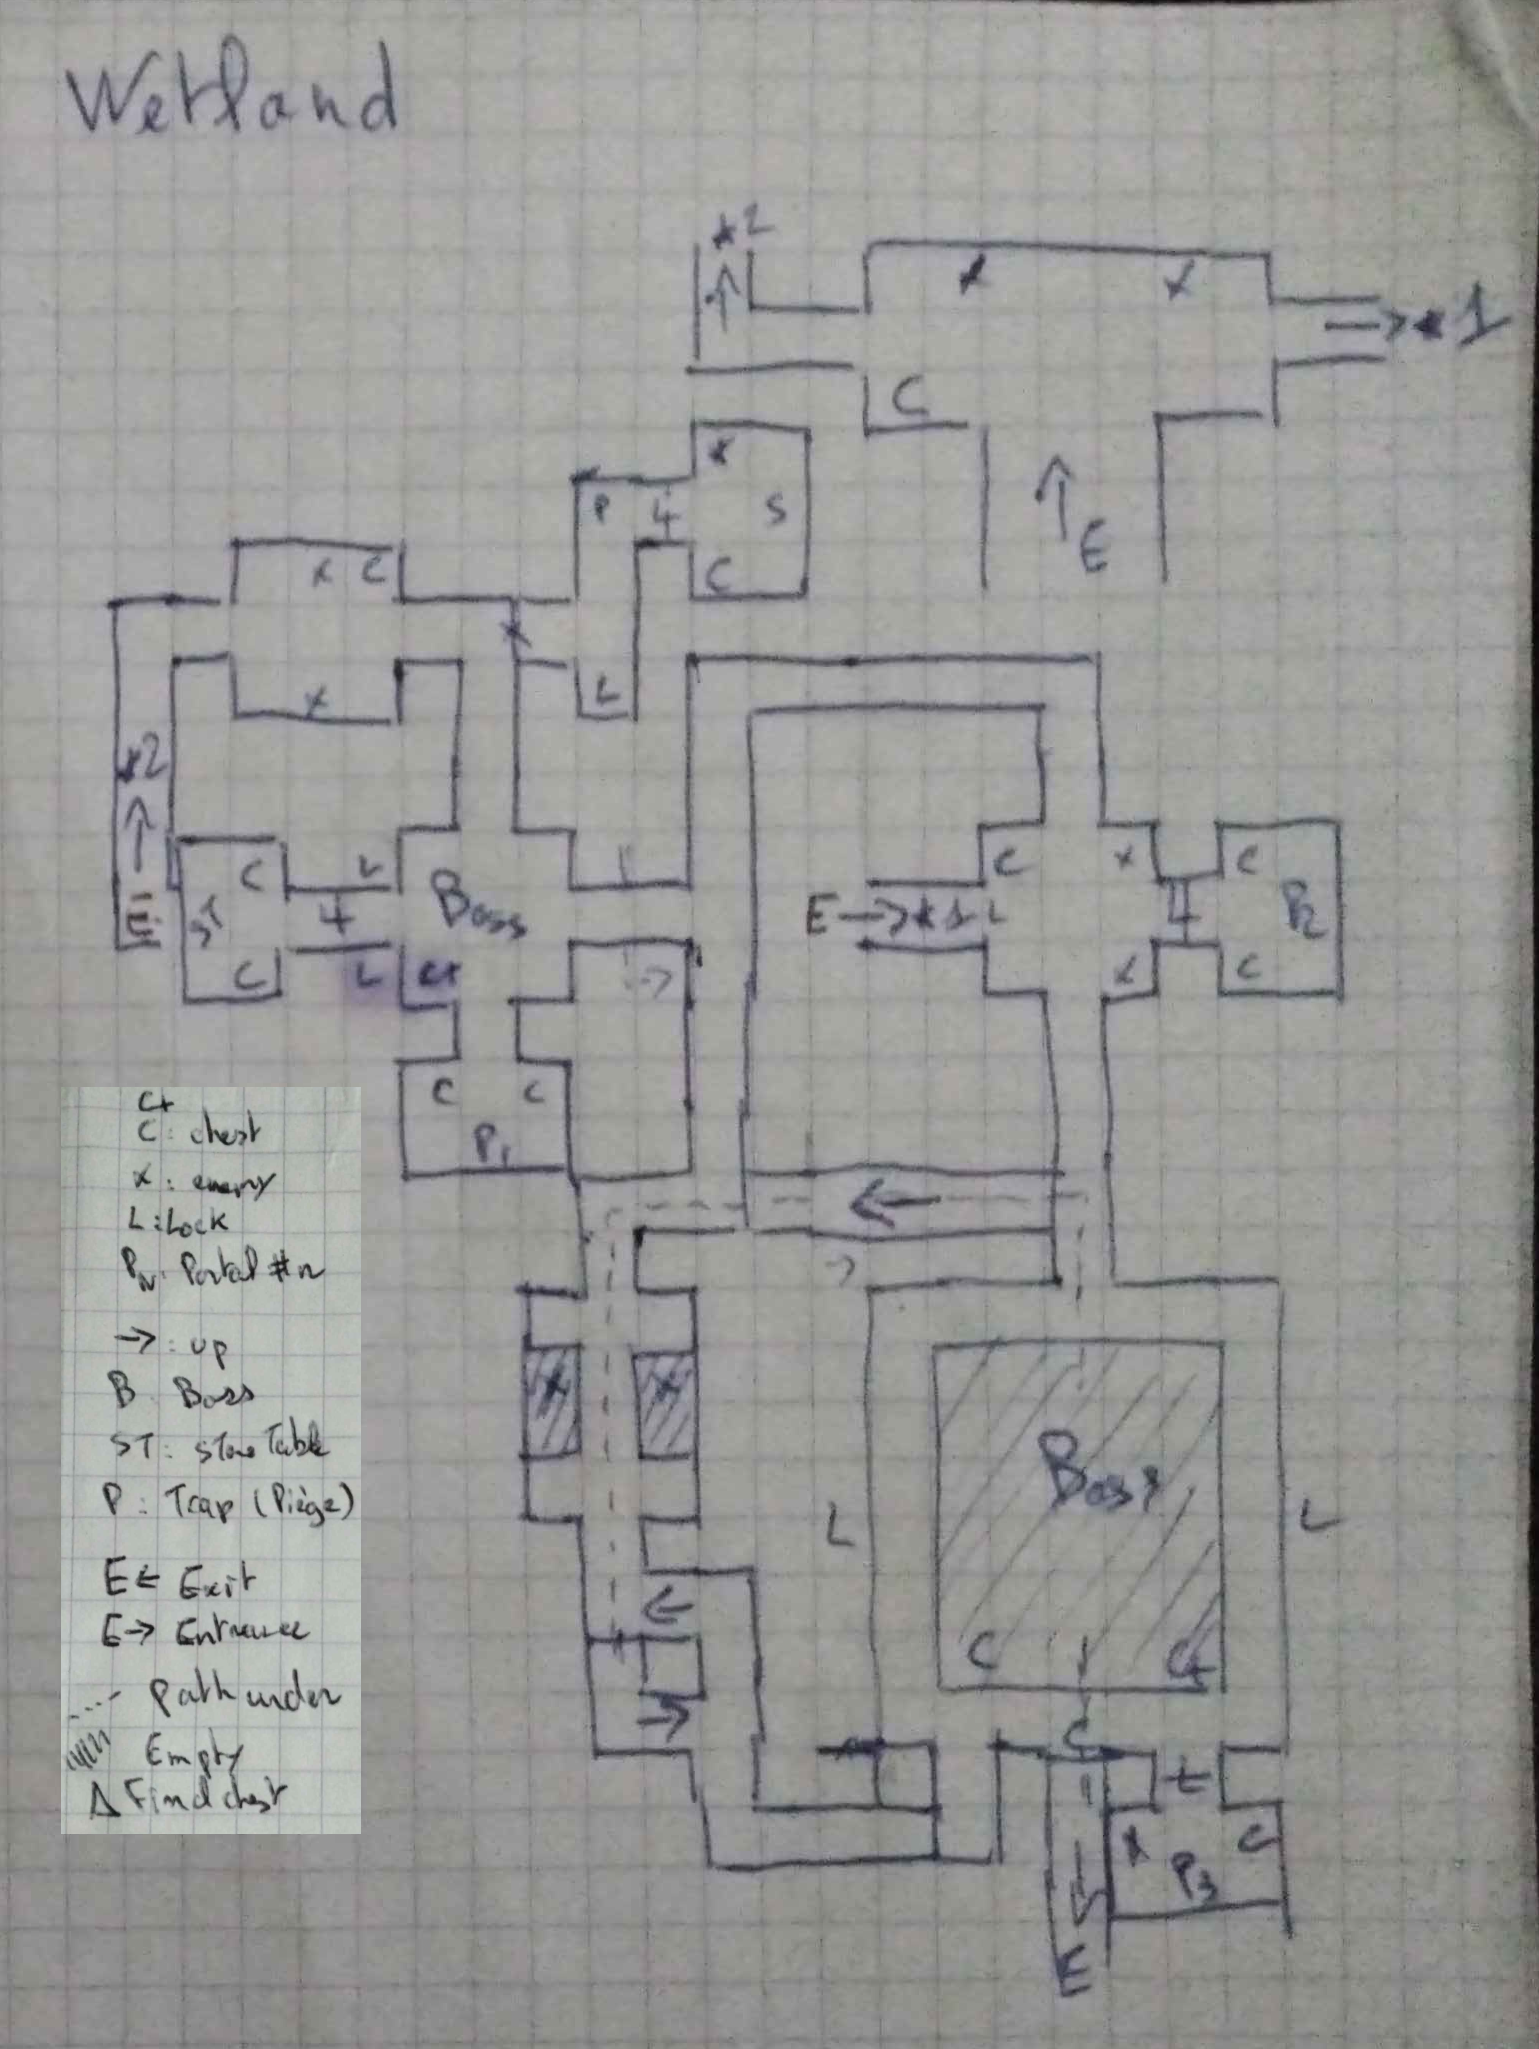 Wetland
*2
x x
→ *1
C
x
P L S
↑ E
x C
C
x
L
x
*2
↑
C L
C x C
E ST L Boss
E → *1 L
P2
C L C+
→
x C
C C
P1
C+
C : chest
x : enemy
L : Lock
PN : Portal #n
→ : up
B : Boss
ST : stone Table
P : Trap (Piège)
E ← Exit
E → Entrance
... path under
Empty
Δ Find chest
←
x x
Boss
L L
←
C C+
→
C
L
x C
P3
E